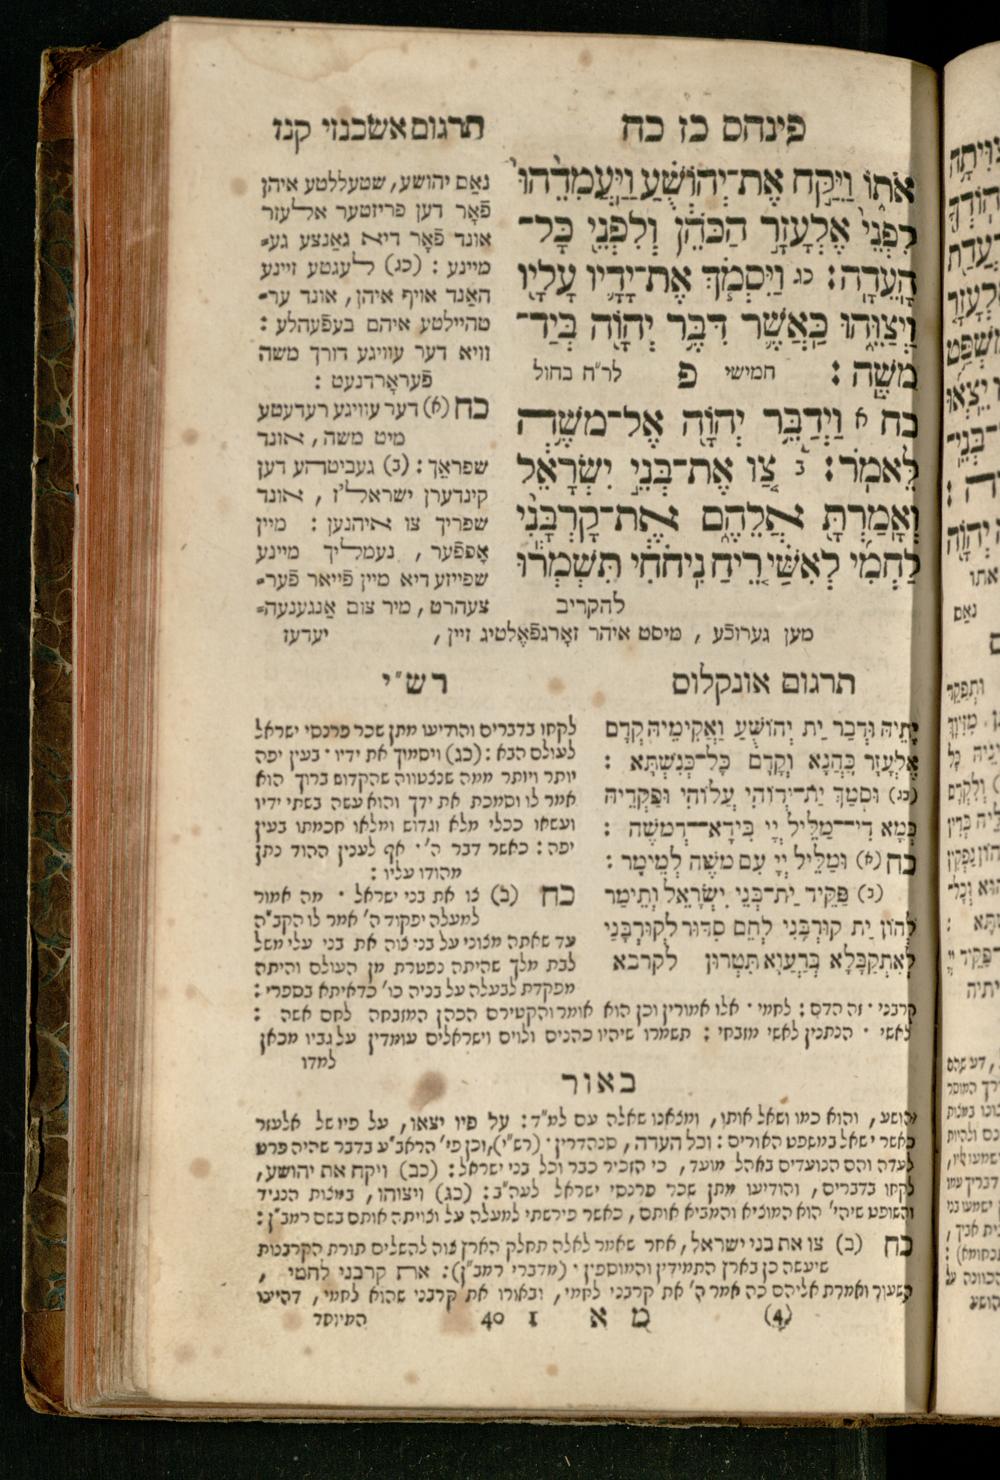 פינהס כז כח
תרגום אשכנזי קנז
אֹתוֹ וַיִּקַּח אֶת־יְהוֹשֻׁעַ וַיַּעֲמִדֵהוּ
לִפְנֵי אֶלְעָזָר הַכֹּהֵן וְלִפְנֵי כָּל־
הָעֵדָה׃ כג וַיִּסְמֹךְ אֶת־יָדָיו עָלָיו
וַיְצַוֵּהוּ כַּאֲשֶׁר דִּבֶּר יְהוָֹה בְּיַד־
משֶׁה׃ חמישי פ לר״ח בחול
כח א וַיְדַבֵּר יְהוָֹה אֶל־משֶׁה
לֵּאמֹר׃ ב צַו אֶת־בְּנֵי יִשְׂרָאֵל
וְאָמַרְתָּ אֲלֵהֶם אֶת־קָרְבָּנִי
לַחְמִי לְאִשַּׁי רֵיחַ נִיחֹחִי תִּשְׁמְרוּ
להקריב
נאַם יהושע, שטעללטע איהן
פֿאָר דען פריזטער אלעזר
אונד פֿאָר דיא גאַנצע גע=
מיינע : (כג) לעגטע זיינע
האַנד אויף איהן, אונד ער=
טהיילטע איהם בעפֿעהלע :
וויא דער עוויגע דורך משה
פֿעראָרדנעט :
כח (א) דער עוויגע רעדעטע
מיט משה, אונד
שפראַך : (ב) געביטהע דען
קינדערן ישראל'ז , אונד
שפריך צו איהנען : מיין
אָפּפֿער , נעמליך מיינע
שפייזע דיא מיין פֿייאר פֿער=
צעהרט, מיר צום אַנגענעה=
מען גערוכֿע , מיסט איהר זאָרגפֿאֶלטיג זיין , יעדעז
תרגום אונקלוס
יָתֵיהּ וּדְבַר יַת יְהוֹשֻׁעַ וַאֲקִימֵיהּ קְדָם
אֶלְעָזָר כַּהֲנָא וְקָדָם כָּל־כְּנִשְׁתָּא :
(כג) וּסְמַךְ יַת־יְדוֹהִי עֲלוֹהִי וּפַקְּדֵיהּ
כְּמָא דִי־מַלֵּיל יְיָ בִּידָא־דְמשֶׁה :
כח (א) וּמַלֵּיל יְיָ עִם משֶׁה לְמֵימָר :
(ב) פַּקֵּיד יַת־בְּנֵי יִשְׂרָאֵל וְתֵימַר
לְהוֹן יַת קוּרְבָּנִי לְחֵם סִדּוּר לְקוּרְבָּנַי
לְאִתְקַבָּלָא בְּרַעֲוָא תִּטְּרוּן לקרבא
רש״י
לקחו בדברים והודיעו מתן שכר פרנסי ישראל
לעולם הבא : (כג) ויסמוך את ידיו · בעין יפה
יותר ויותר ממה שנצטווה שהקדוש ברוך הוא
אמר לו וסמכת את ידך והוא עשה בשתי ידיו
ועשאו ככלי מלא וגדוש ומלאו חכמתו בעין
יפה : כאשר דבר ה' · אף לענין ההוד נתן
מהודו עליו :
כח (ב) צו את בני ישראל · מה אמור
למעלה יפקוד ה' אמר לו הקב״ה
עד שאתה מצוני על בני צוה את בני עלי משל
לבת מלך שהיתה נפטרת מן העולם והיתה
מפקדת לבעלה על בניה כו' כדאיתא בספרי :
קרבני · זה הדם : לחמי · אלו אמורין וכן הוא אומר והקטירם הכהן המזבחה לחם אשה :
לאשי · הנתנין לאשי מזבחי : תשמרו שיהיו כהנים ולוים וישראלים עומדין על גביו מכאן
למדו
באור
יהושע, והוא כמו ושאל אותו, ומצאנו שאלה עם למ״ד : על פיו יצאו, על פיו של אלעזר
כאשר ישאל במשפט האורים : וכל העדה, סנהדרין · (רש״י), וכן פי' הראב״ע בדבר שהיה פרט
לעדה והם הנועדים באהל מועד, כי הזכיר כבר וכל בני ישראל : (כב) ויקח את יהושע,
לקחו בדברים, והודיעו מתן שכר פרנסי ישראל לעה״ב : (כג) ויצוהו, במצות הנגיד
והשופט שיהי' הוא המוציא והמביא אותם, כאשר פירשתי למעלה על וצויתה אותם בשם רמב״ן :
כח (ב) צו את בני ישראל, אחר שאמר לאלה תחלק הארץ צוה להשלים תורת הקרבנות
שיעשה כן בארץ התמידין והמוספין · (מדברי רמב״ן) : את קרבני לחמי ,
כשעור ואמרת אליהם כה אמר ה' את קרבני לחמי, ובאורו את קרבני שהוא לחמי, דהיינו
(4) מ א ז 40 המיוסד